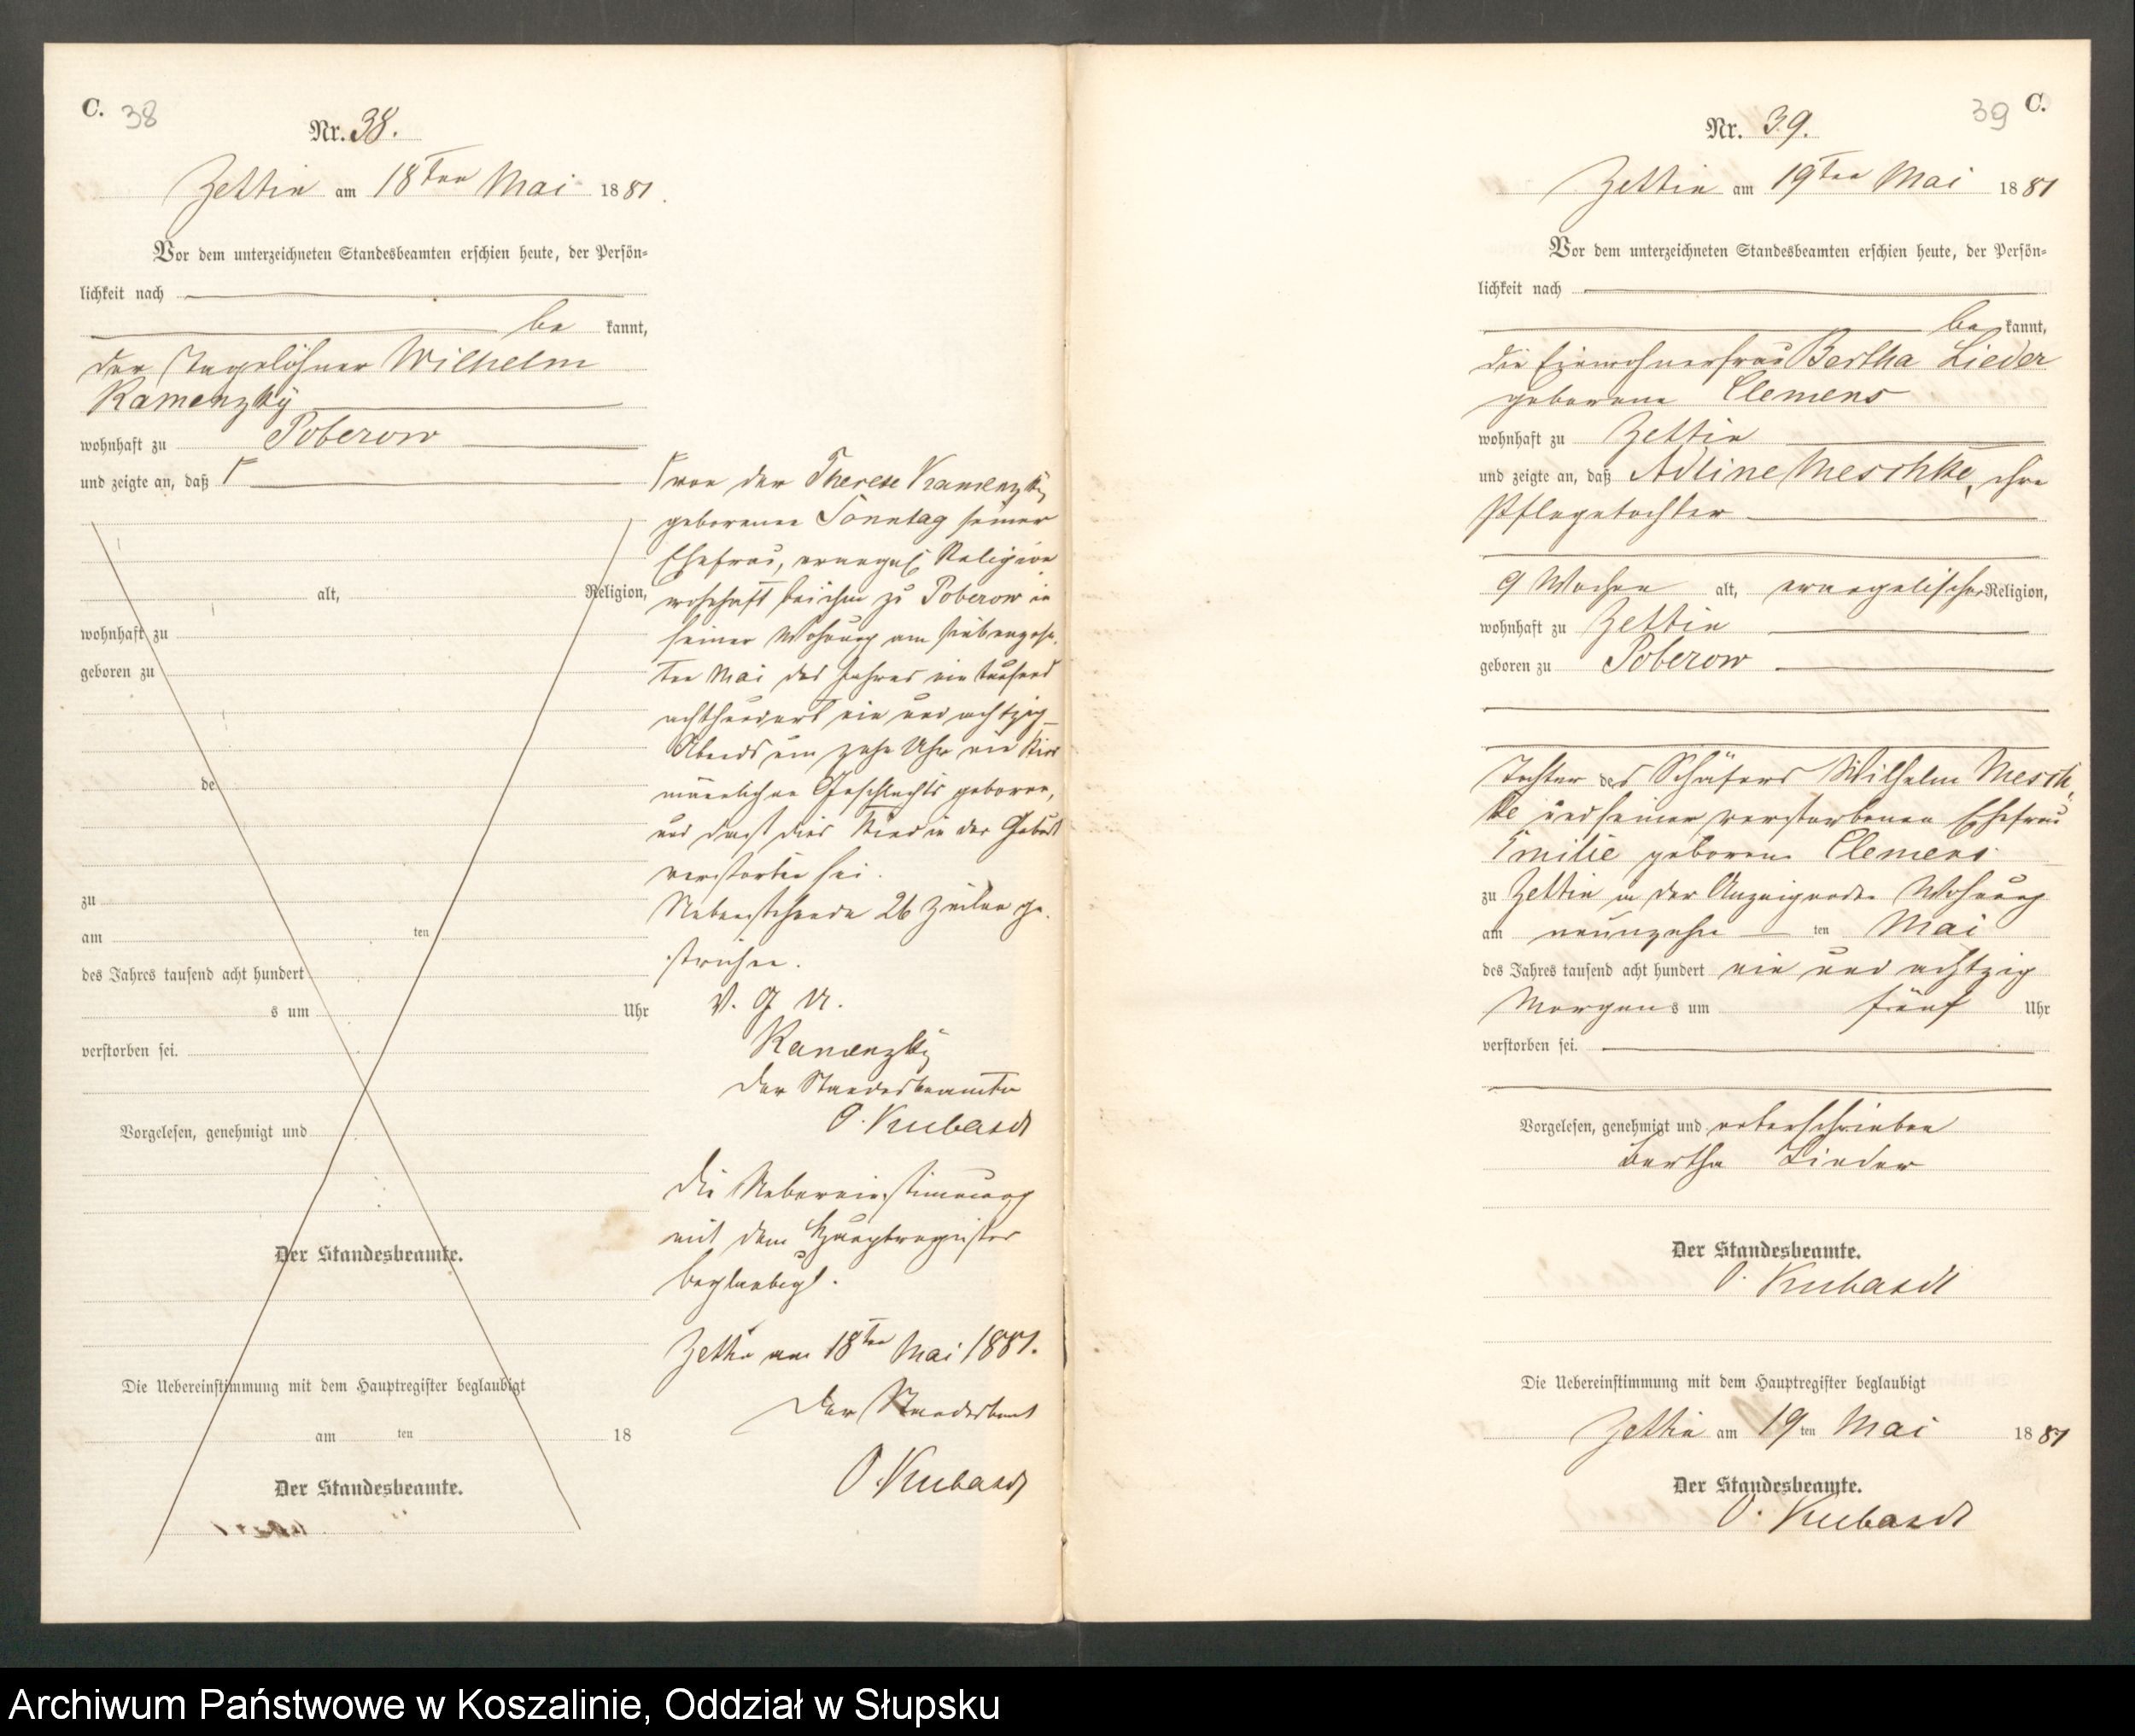 C. 38
Nr. 38.
Zettin am 18ten Mai 1881.
Vor dem unterzeichneten Standesbeamten erschien heute, der Persön-
lichkeit nach
be kannt,
der Tagelöhner Wilhelm
Kamenzky
wohnhaft zu Poberow
und zeigte an, daß
alt, Religion,
wohnhaft zu
geboren zu
de
zu
am ten
des Jahres tausend acht hundert
s um Uhr
verstorben sei.
Vorgelesen, genehmigt und
Der Standesbeamte.
Die Uebereinstimmung mit dem Hauptregister beglaubigt
am ten 18
Der Standesbeamte.
von der Therese Kamenzky
geborenen Sonntag seiner
Ehefrau, evangel. Religion
wohnhaft bei ihm zu Poberow in
seiner Wohnung am siebenzehn-
ten Mai des Jahres ein tausend
achthundert ein und achtzig
Abends um zehn Uhr ein Kind
männlichen Geschlechts geboren,
und daß dies Kind in der Geburt
verstorben sei.
Nebenstehende 26 Zeilen ge-
strichen.
V. G. U.
Kamenzky
Der Standesbeamte
O. Kubasch
Die Uebereinstimmung
mit dem Hauptregister
beglaubigt.
Zettin am 18ten Mai 1881.
Der Standesbeamt
O. Kubasch
39 C.
Nr. 39.
Zettin am 19ten Mai 1881
Vor dem unterzeichneten Standesbeamten erschien heute, der Persön-
lichkeit nach
be kannt,
die Einwohnerfrau Bertha Lieder
geborene Clemens
wohnhaft zu Zettin
und zeigte an, daß Adline Meschke, ihre
Pflegetochter
9 Wochen alt, evangelischer Religion,
wohnhaft zu Zettin
geboren zu Poberow
Tochter des Schäfers Wilhelm Mesch-
ke und seiner verstorbenen Ehefrau
Emilie geborene Clemens
zu Zettin in der Wohnung
am neunzehn ten Mai
des Jahres tausend acht hundert ein und achtzig
Morgens um fünf Uhr
verstorben sei.
Vorgelesen, genehmigt und unterschrieben
Bertha Lieder
Der Standesbeamte.
O. Kubasch
Die Uebereinstimmung mit dem Hauptregister beglaubigt
Zettin am 19ten Mai 1881
Der Standesbeamte.
O. Kubasch
Archiwum Państwowe w Koszalinie, Oddział w Słupsku